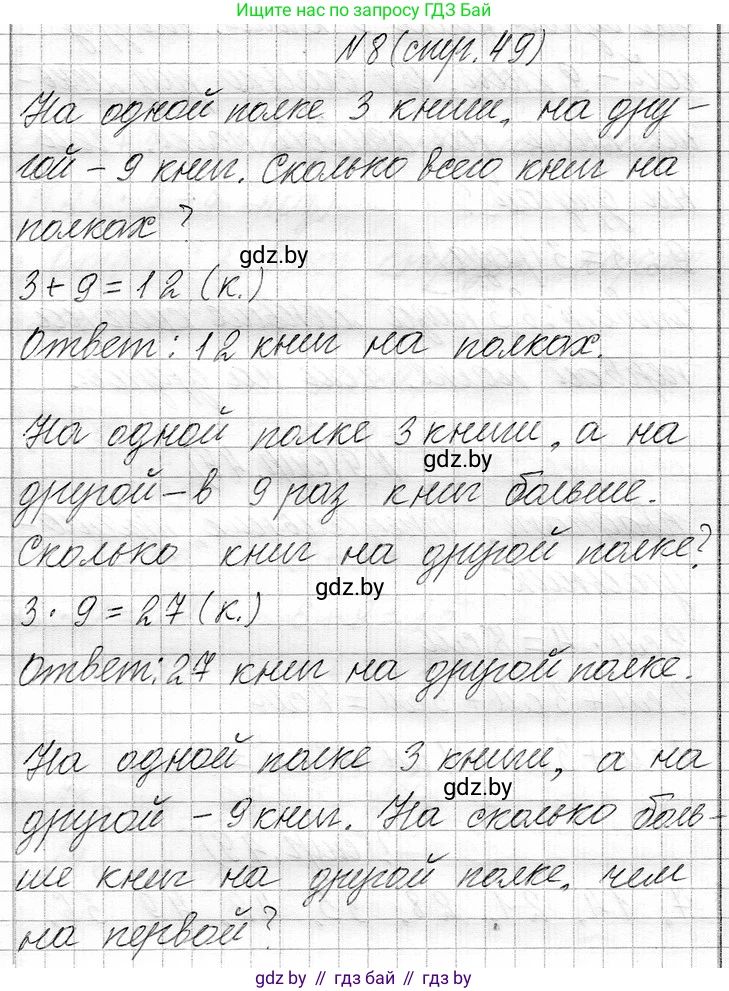 Ищите нас по запросу ГДЗ Бай
N8 (стр. 49)
На одной полке 3 книги, на дру-
гой - 9 книг. Сколько всего книг на
полках?
gdz.by
3+9=12 (к.)
Ответ: 12 книг на полках.
На одной полке 3 книги, а на
gdz.by
другой - в 9 раз книг больше.
Сколько книг на другой полке?
gdz.by
3·9=27 (к.)
Ответ: 27 книг на другой полке.
На одной полке 3 книги, а на
gdz.by
другой - 9 книг. На сколько боль-
ше книг на другой полке, чем
на первой?
gdz.by // гдз бай // gdz.by